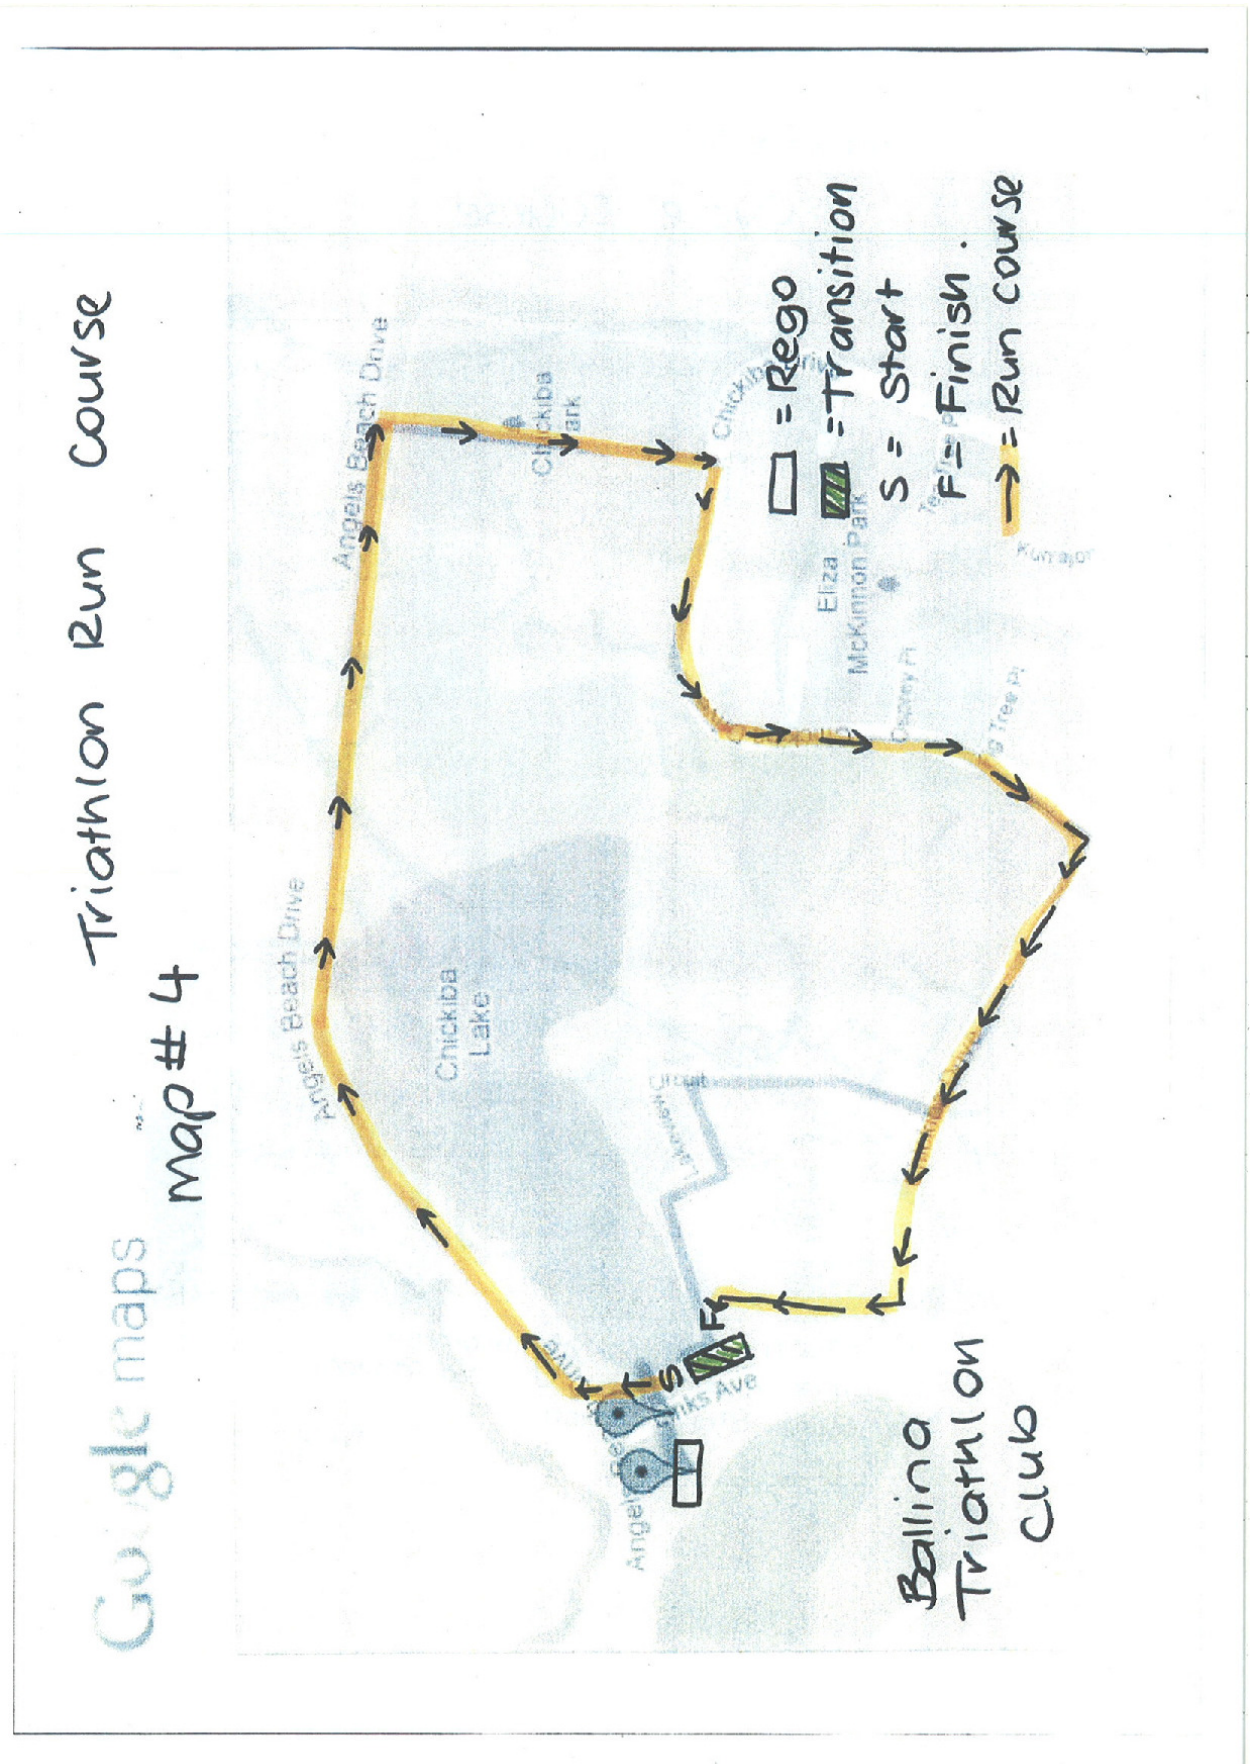 Google maps
Triathlon Run Course
map # 4
Angels Beach Drive
Angels Beach Drive
Chickiba
Lake
Chickiba
Park
Chickiba Drive
Eliza
McKinnon Park
Osprey Pl
Lakeview Circuit
= Rego
= Transition
S = Start
F = Finish.
= Run course
S
F
Ballina
Triathlon
Club